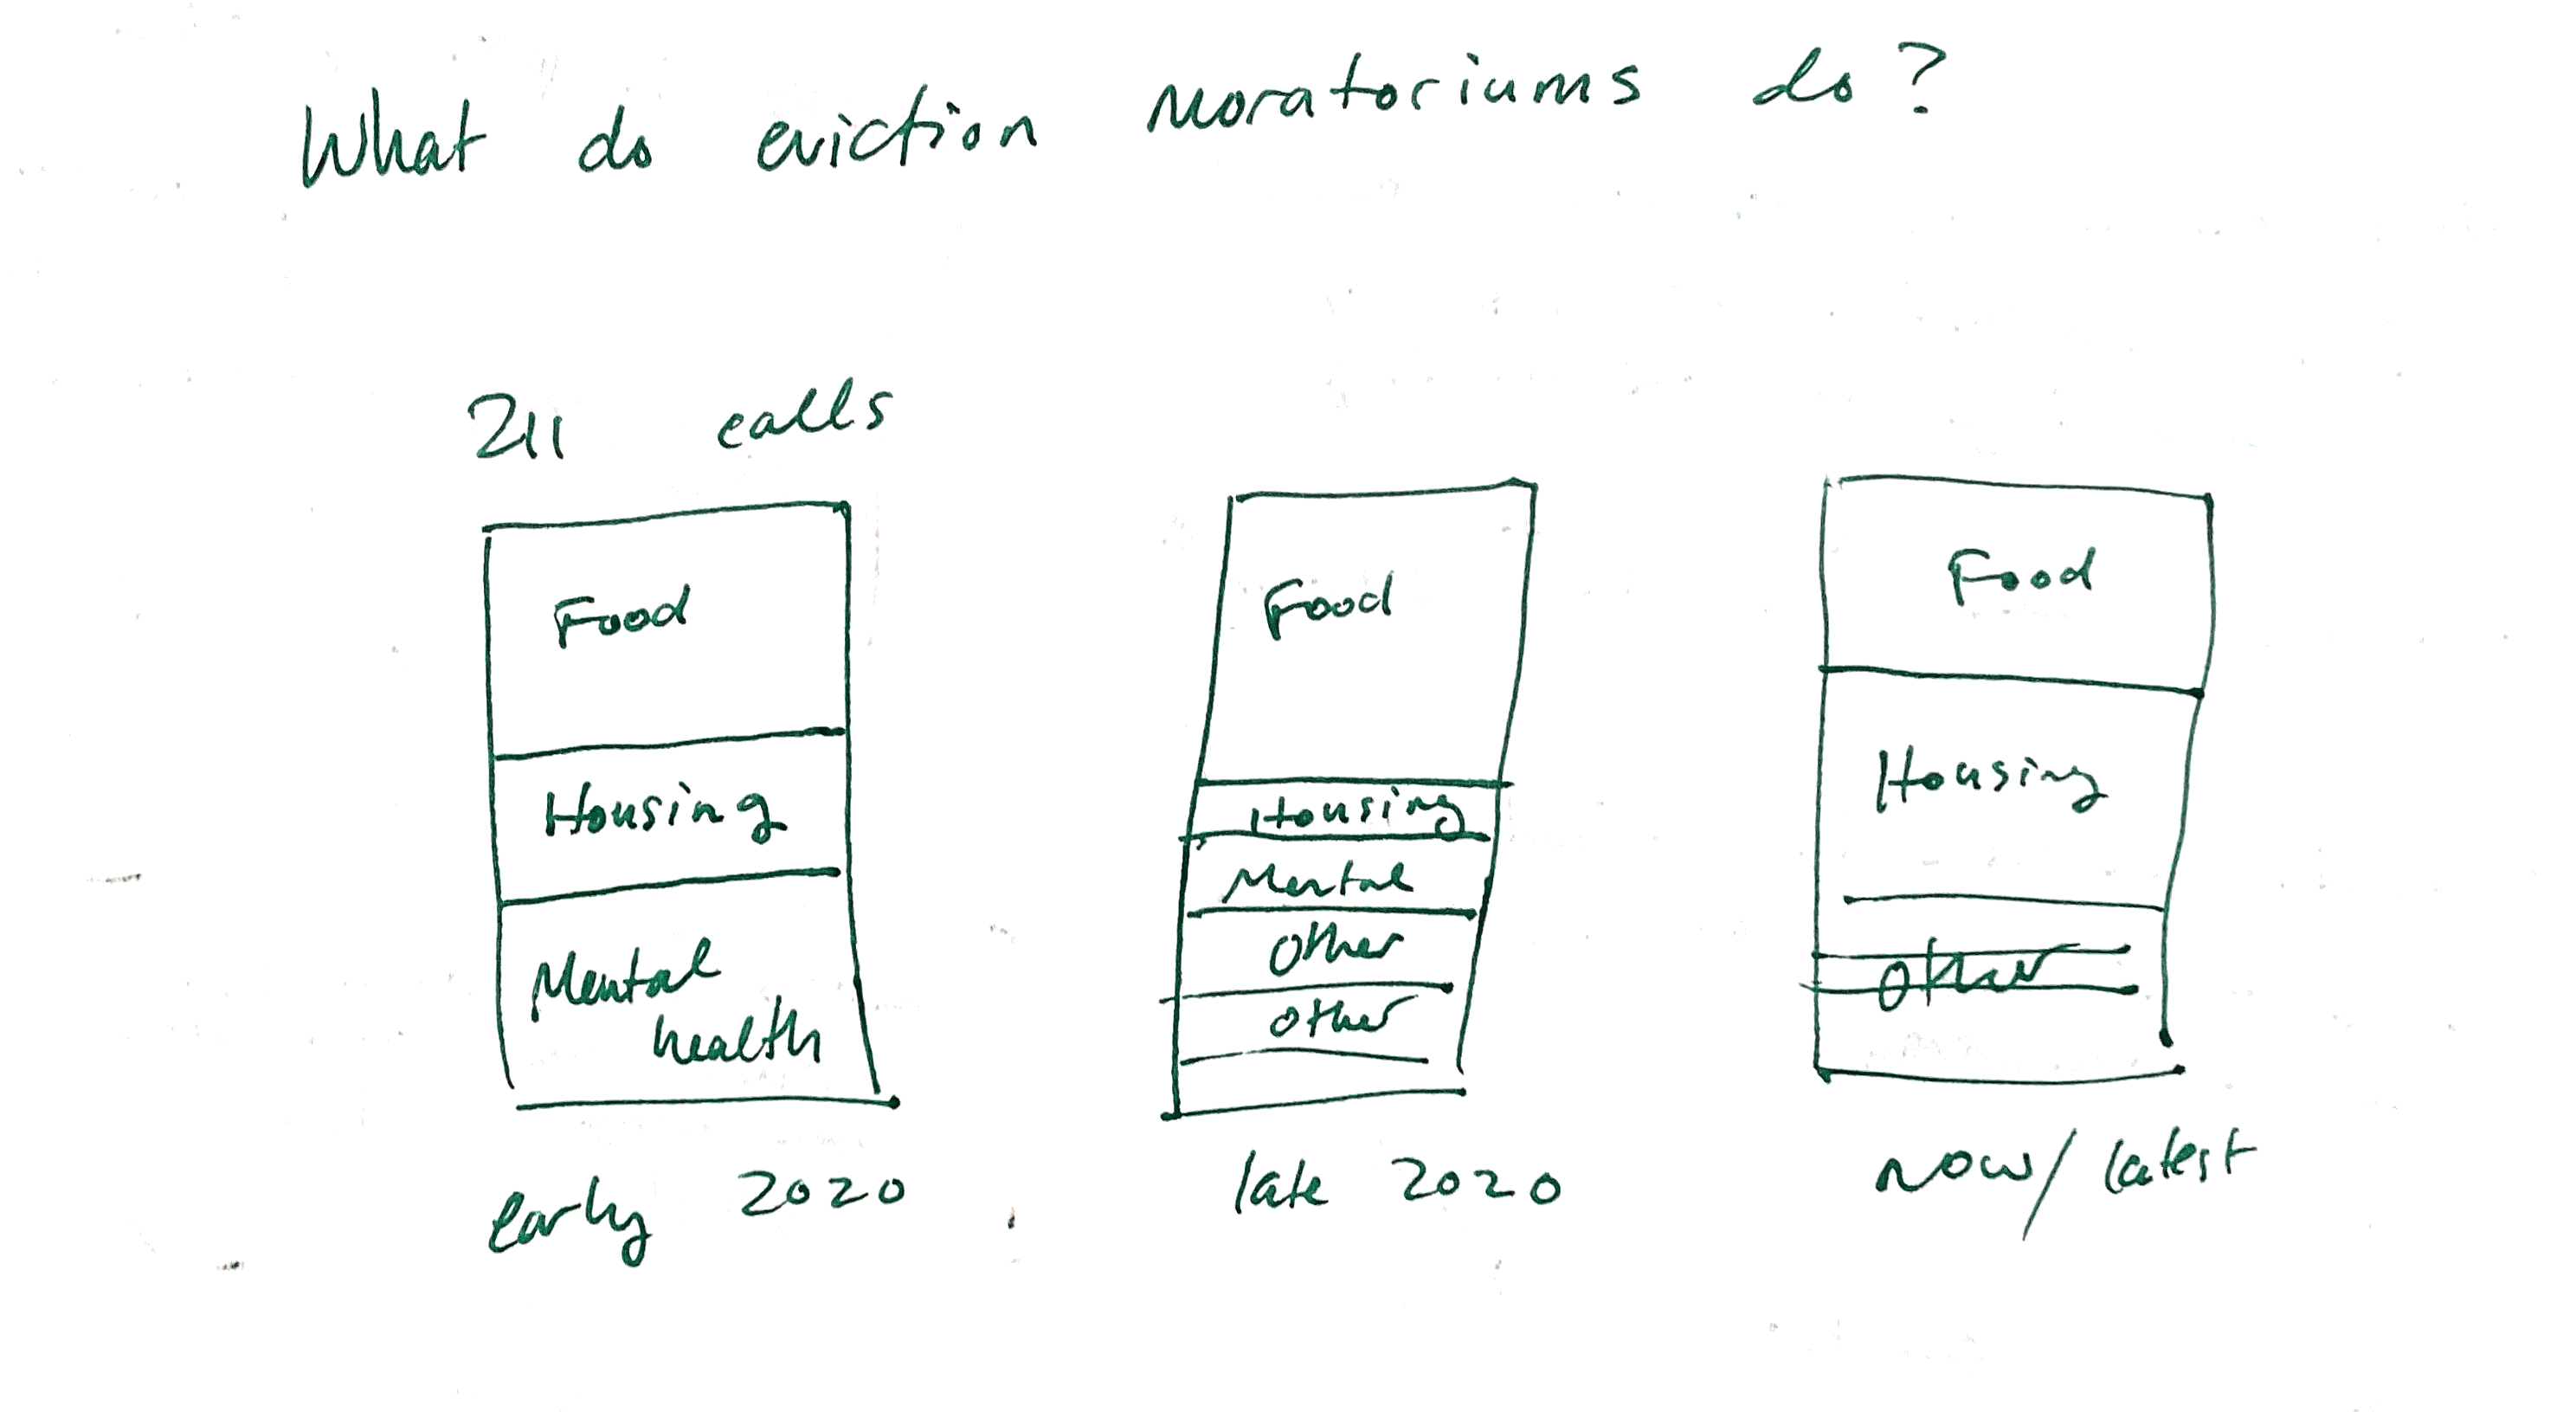 What do eviction moratoriums do?
211 calls
Food
Housing
Mental
health
early 2020
Food
Housing
Mental
Other
other
late 2020
Food
Housing
Other
now/latest